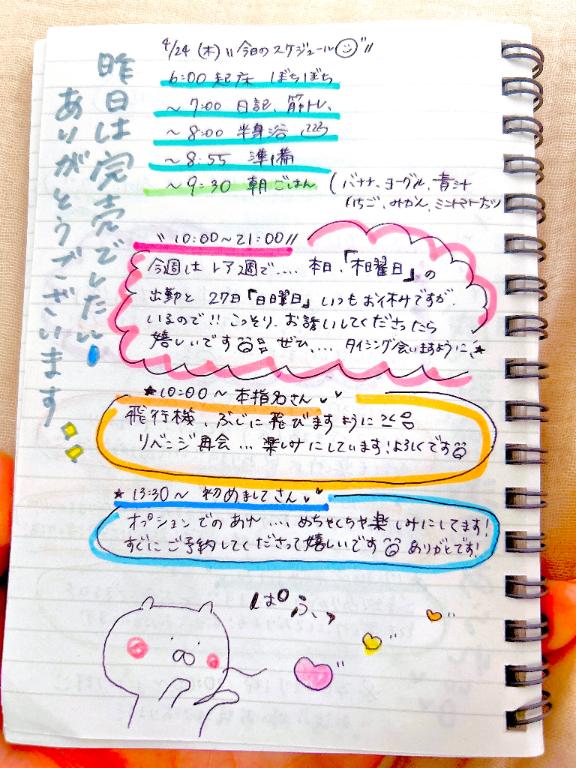 昨日は完売でした!
ありがとうございます
4/24 (木) "今日のスケジュール"
6:00 起床 ぼちぼち
~7:00 日記、筋トレ、
~8:00 半身浴
~8:55 準備
~9:30 朝ごはん (バナナ、ヨーグル、青汁
いちご、みかん、ミニトマトたべ
"10:00~21:00"
今週はレア週で.... 本日、「木曜日」の
出勤と 27日「日曜日」いつもお休けですが、
いるので!! こっそり、お誘いしてくださったら
嬉しいです ぜひ、... タイミング会いますように、★
★10:00~ 本指名さん
飛行機、ぶじに飛びますように
リベンジ再会... 楽しみにしています!よろしくです
★13:30~ 初めましてさん
オプションでのあれ .... めちゃくちゃ楽しみにしてます!
すぐにご予約してくださって嬉しいです ありがとです!
ぱふっ